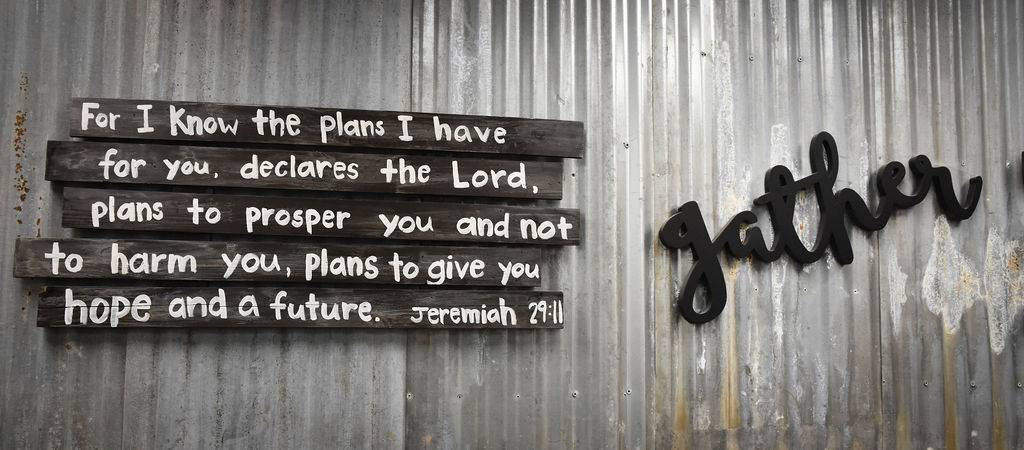 For I Know the plans I have
for you, declares the Lord,
plans to prosper you and not
to harm you, plans to give you
hope and a future. Jeremiah 29:11
gather